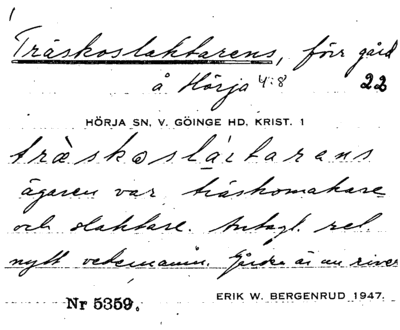 Träskoslaktarens, förr gård
å Hörja 4:8 22
HÖRJA SN, V. GÖINGE HD, KRIST. 1
träskoslaktarans
ägaren var träskomakare
och slaktare. Antagl. rel.
nytt vedernamn. Gården är nu river
Nr 5359. ERIK W. BERGENRUD 1947.